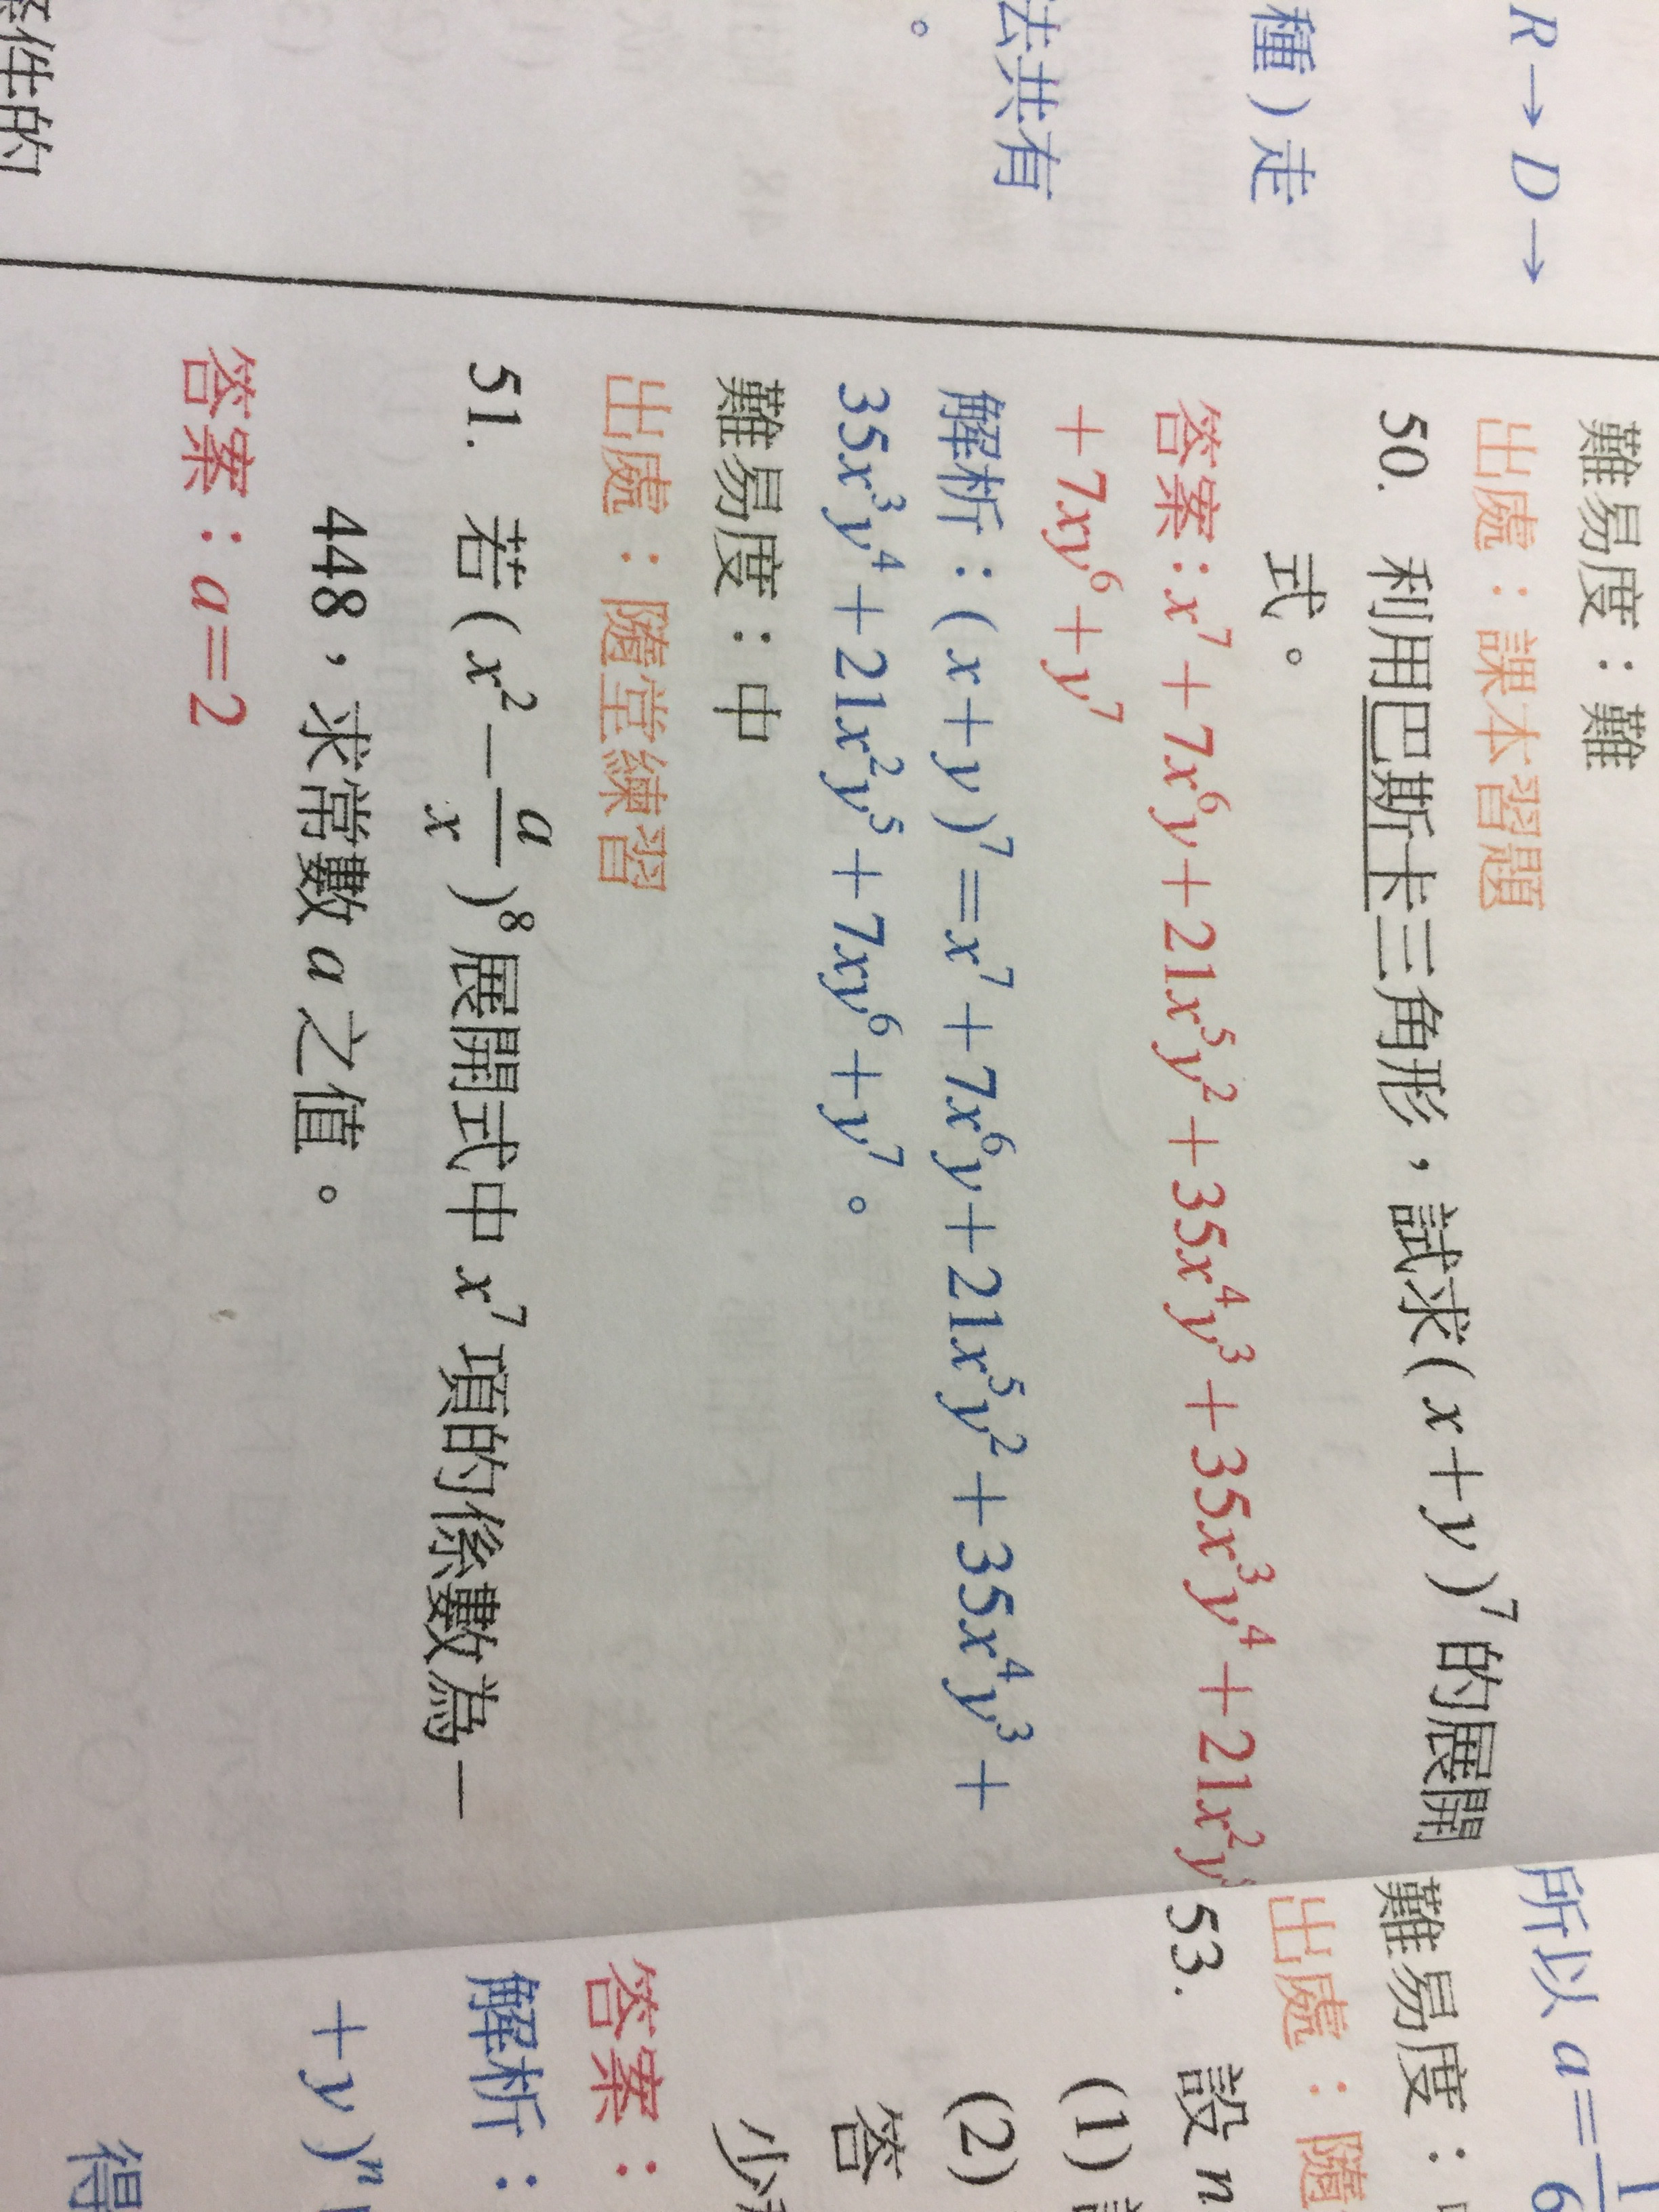 R → D →
種）走
法共有
。
案件的
難易度：難
出處：課本習題
50. 利用巴斯卡三角形，試求(x+y)⁷的展開
式。
答案：x⁷+7x⁶y+21x⁵y²+35x⁴y³+35x³y⁴+21x²y
+7xy⁶+y⁷
解析：(x+y)⁷=x⁷+7x⁶y+21x⁵y²+35x⁴y³+
35x³y⁴+21x²y⁵+7xy⁶+y⁷。
難易度：中
出處：隨堂練習
51. 若(x²−a/x)⁸展開式中x⁷項的係數為−
448，求常數a之值。
答案：a=2
所以 a=1/6
難易度：
出處：隨
53. 設n
(1)
(2)
答
少
答案：
解析：
+y)ⁿ
得